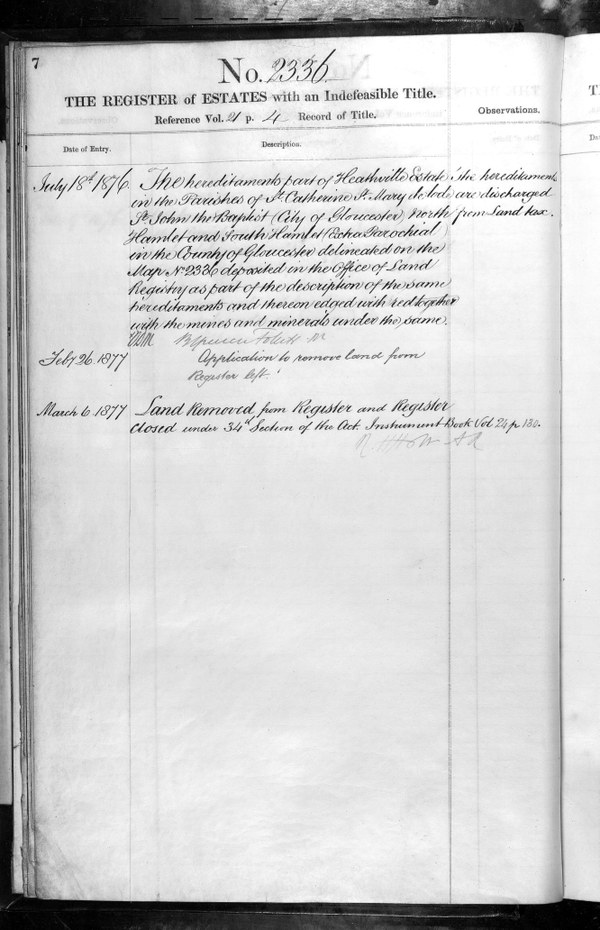 7
No. 2336
THE REGISTER of ESTATES with an Indefeasible Title.
Reference Vol. 21 p. 4 Record of Title.
Observations.
Date of Entry.
Description.
July 18th 1876. The hereditaments part of Heathville Estate
in the Parishes of St. Catherine St. Mary de lode
St. John the Baptist (City of Gloucester) North
Hamlet and South Hamlet (Extra Parochial
in the County of Gloucester delineated on the
Map No 2336 deposited in the Office of Land
Registry as part of the description of the same
hereditaments and thereon edged with red together
with the mines and minerals under the same.
The hereditaments
are discharged
from Land tax.
Feby 26. 1877 Application to remove land from
Register left.
March 6. 1877 Land Removed from Register and Register
closed under 34th Section of the Act. Instrument Book Vol 24 p 130.